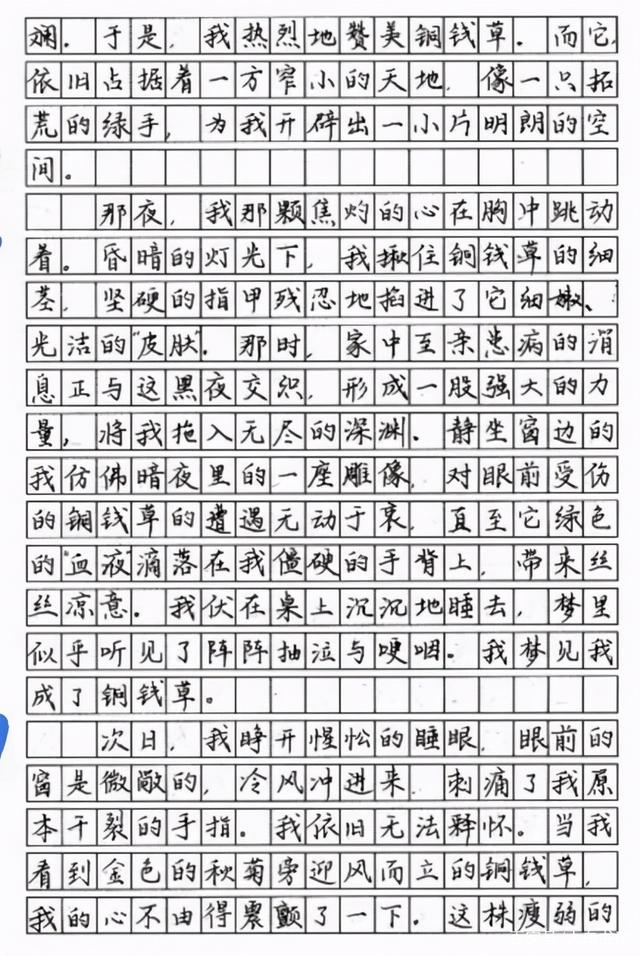 斓。于是，我热烈地赞美铜钱草。而它，
依旧占据着一方窄小的天地，像一只拓
荒的绿手，为我开辟出一小片明朗的空
间。
那夜，我那颗焦灼的心在胸中跳动
着。昏暗的灯光下，我揪住铜钱草的细
茎，坚硬的指甲残忍地掐进了它细嫩、
光洁的“皮肤”。那时，家中至亲患病的消
息正与这黑夜交织，形成一股强大的力
量，将我拖入无尽的深渊。静坐窗边的
我仿佛暗夜里的一座雕像，对眼前受伤
的铜钱草的遭遇无动于衷，直至它绿色
的“血液”滴落在我僵硬的手背上，带来丝
丝凉意。我伏在桌上沉沉地睡去，梦里
似乎听见了阵阵抽泣与哽咽。我梦见我
成了铜钱草。
次日，我睁开惺忪的睡眼，眼前的
窗是微敞的，冷风冲进来，刺痛了我原
本干裂的手指。我依旧无法释怀。当我
看到金色的秋菊旁迎风而立的铜钱草，
我的心不由得震颤了一下。这株瘦弱的